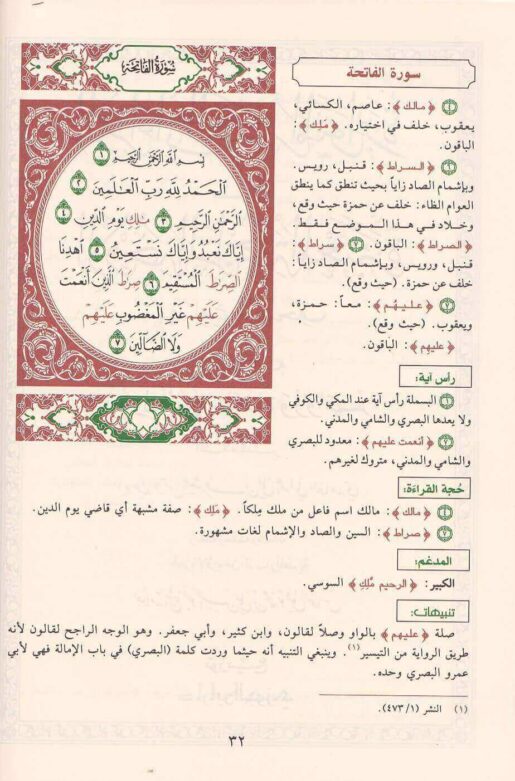 سورة الفاتحة
﴿٤﴾ ﴿مالك﴾: عاصم، الكسائي،
يعقوب، خلف في اختياره. ﴿مَلِك﴾:
الباقون.
﴿٦﴾ ﴿السراط﴾: قنبل، رويس.
وبإشمام الصاد زاياً بحيث تنطق كما ينطق
العوام الظاء: خلف عن حمزة حيث وقع،
وخلاد في هذا الموضع فقط.
﴿الصراط﴾: الباقون. ﴿٧﴾ ﴿سراط﴾:
قنبل، ورويس، وبإشمام الصاد زاياً:
خلف عن حمزة. (حيث وقع).
﴿٧﴾ ﴿عليهُم﴾: معاً: حمزة،
ويعقوب. (حيث وقع).
﴿عليهِم﴾: الباقون.
رأس آية:
﴿١﴾ البسملة رأس آية عند المكي والكوفي
ولا يعدها البصري والشامي والمدني.
﴿٧﴾ ﴿أنعمت عليهم﴾: معدود للبصري
والشامي والمدني، متروك لغيرهم.
سُورَةُ الفَاتِحَةِ
بِسْمِ اللَّهِ الرَّحْمَٰنِ الرَّحِيمِ ١
الْحَمْدُ لِلَّهِ رَبِّ الْعَالَمِينَ ٢
الرَّحْمَٰنِ الرَّحِيمِ ٣ مَٰلِكِ يَوْمِ الدِّينِ ٤
إِيَّاكَ نَعْبُدُ وَإِيَّاكَ نَسْتَعِينُ ٥ اهْدِنَا
الصِّرَٰطَ الْمُسْتَقِيمَ ٦ صِرَٰطَ الَّذِينَ أَنْعَمْتَ
عَلَيْهِمْ غَيْرِ الْمَغْضُوبِ عَلَيْهِمْ
وَلَا الضَّالِّينَ ٧
حُجة القراءة:
﴿٤﴾ ﴿مالك﴾: مالك اسم فاعل من ملك مِلكاً. ﴿مَلِك﴾: صفة مشبهة أي قاضي يوم الدين.
﴿٧﴾ ﴿صراط﴾: السين والصاد والإشمام لغات مشهورة.
المدغم:
الكبير: ﴿الرحيم مَّلِك﴾ السوسي.
تنبيهات:
صلة ﴿عليهم﴾ بالواو وصلاً لقالون، وابن كثير، وأبي جعفر. وهو الوجه الراجح لقالون لأنه
طريق الرواية من التيسير(١). وينبغي التنبيه أنه حيثما وردت كلمة (البصري) في باب الإمالة فهي لأبي
عمرو البصري وحده.
(١) النشر (١/ ٤٧٣).
٣٢